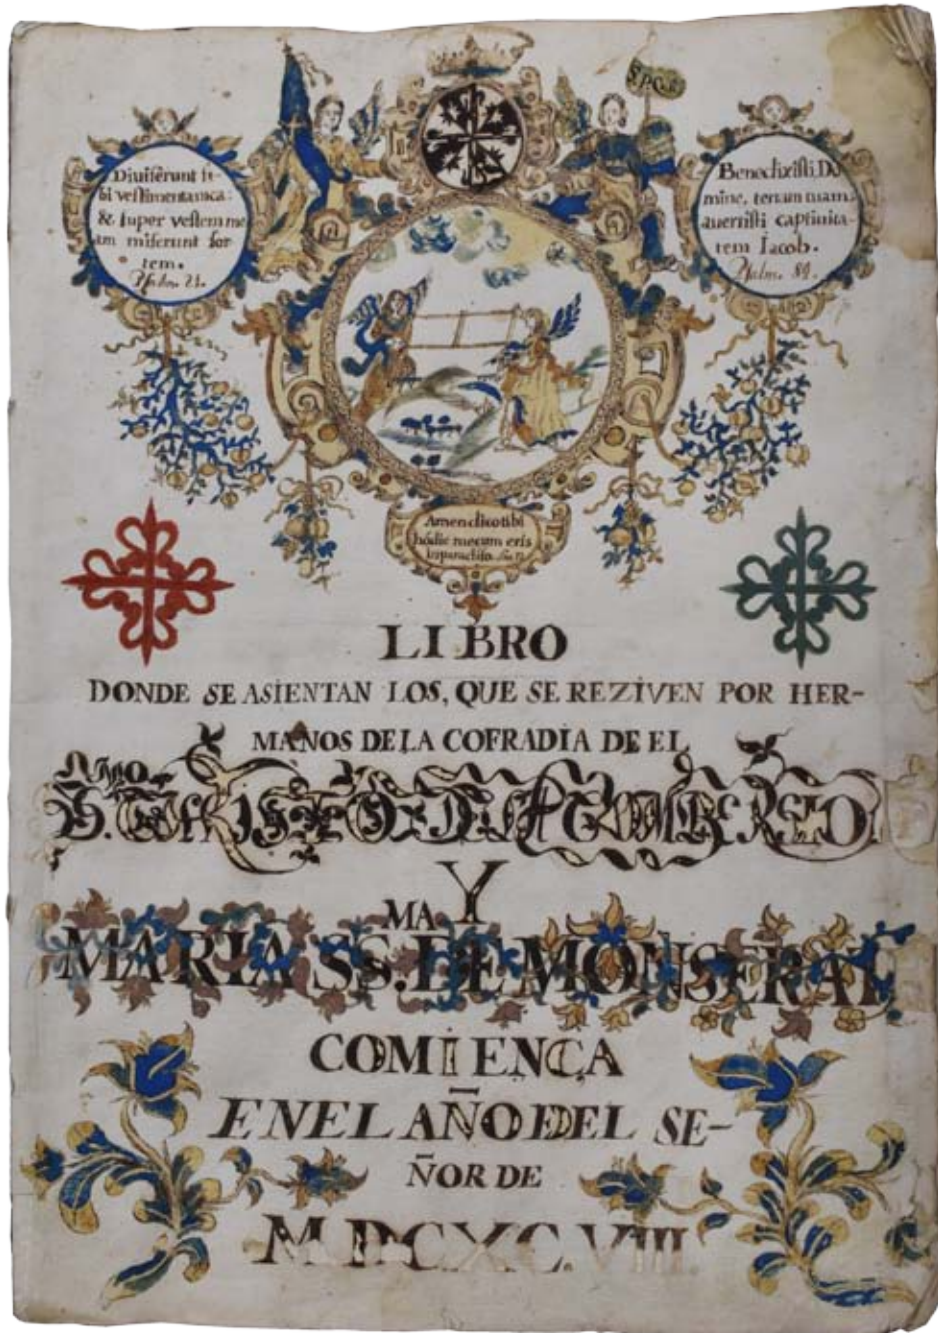 S.P.Q.R
Diuiserunt si-
bi vestimenta mea.
& super vestem me
am miserunt sor
tem.
Psalm. 21.
Benedixisti Do
mine, terram tuam
auertisti captiuita-
tem Iacob.
Psalm. 84.
Amen dico tibi
hodie mecum eris
in paradiso. Luc
LIBRO
DONDE SE ASIENTAN LOS, QUE SE REZIVEN POR HER-
MANOS DE LA COFRADIA DE EL
S.mo CHRISTO DE LA CONVERSIO
Y
MARIA SS.MA DE MONSERAT
COMIENÇA
EN EL AÑO DEL SE-
ÑOR DE
M.DCXC.VIII